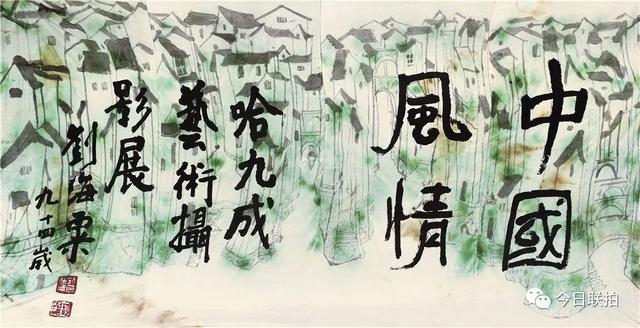 中國
風情
哈九成
藝術攝
影展
劉海粟
九十四歲
今日联拍